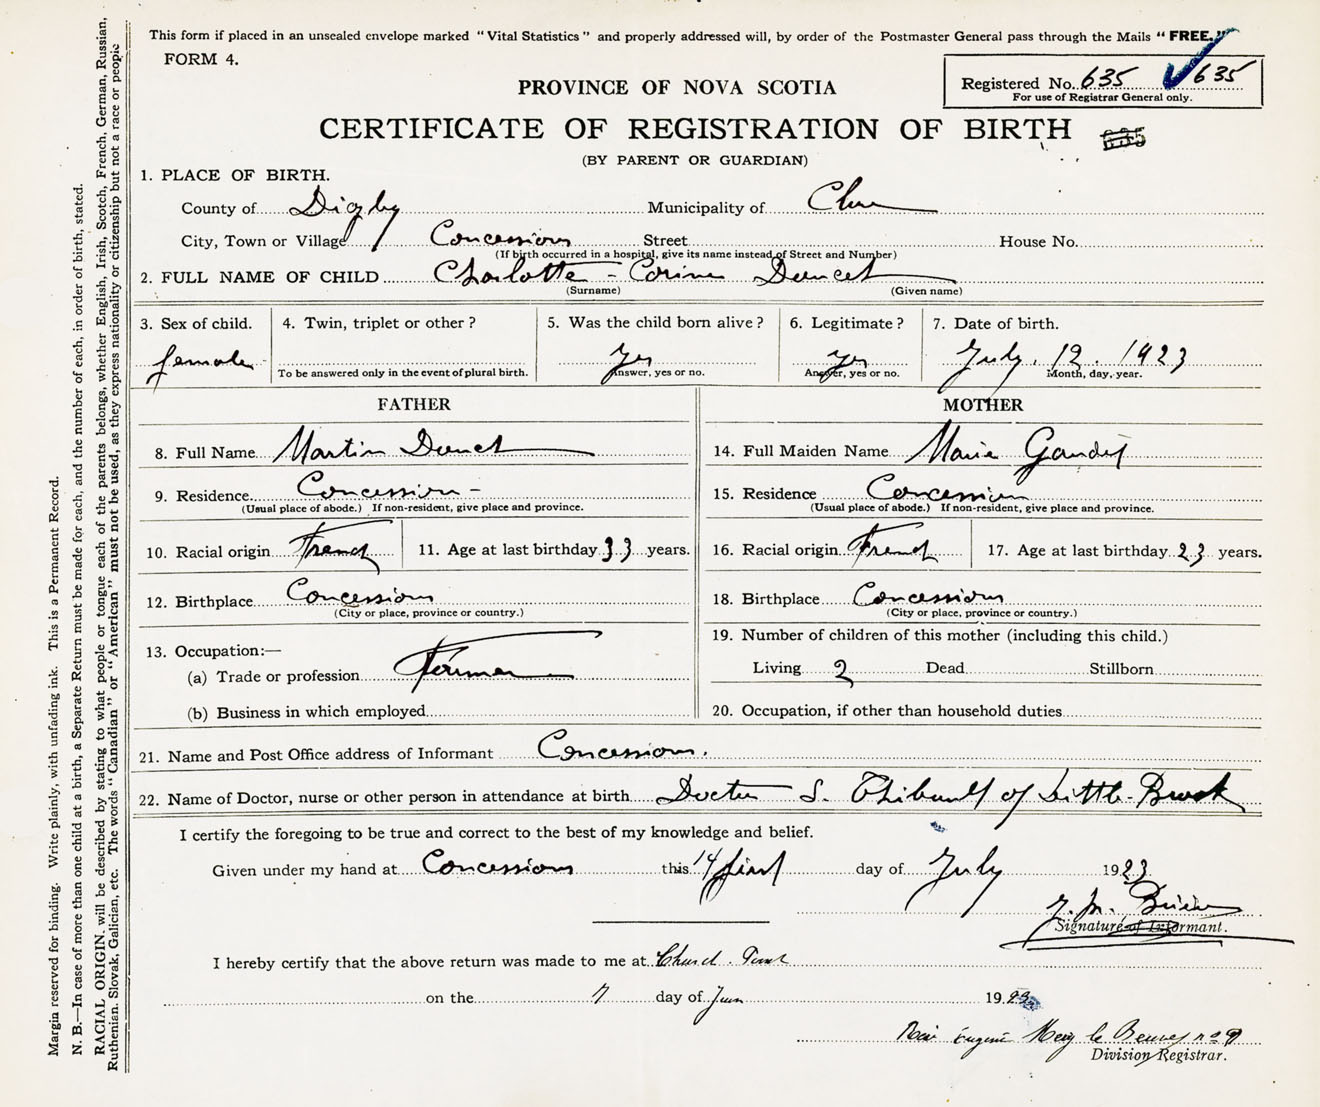 This form if placed in an unsealed envelope marked "Vital Statistics" and properly addressed will, by order of the Postmaster General pass through the Mails "FREE."
FORM 4.
Registered No. 635 635
For use of Registrar General only.
PROVINCE OF NOVA SCOTIA
CERTIFICATE OF REGISTRATION OF BIRTH
635
(BY PARENT OR GUARDIAN)
1. PLACE OF BIRTH.
County of Digby Municipality of Clare
City, Town or Village Concession Street House No.
(If birth occurred in a hospital, give its name instead of Street and Number)
2. FULL NAME OF CHILD Charlotte - Corine Doucet
(Surname) (Given name)
3. Sex of child. 4. Twin, triplet or other? 5. Was the child born alive? 6. Legitimate? 7. Date of birth.
female Yes Yes July. 12. 1923
To be answered only in the event of plural birth. Answer, yes or no. Answer, yes or no. Month, day, year.
FATHER
8. Full Name Martin Doucet
9. Residence Concession -
(Usual place of abode.) If non-resident, give place and province.
10. Racial origin French 11. Age at last birthday 33 years.
12. Birthplace Concession
(City or place, province or country.)
13. Occupation:—
(a) Trade or profession Farmer
(b) Business in which employed
MOTHER
14. Full Maiden Name Marie Gaudet
15. Residence Concession
(Usual place of abode.) If non-resident, give place and province.
16. Racial origin French 17. Age at last birthday 23 years.
18. Birthplace Concession
(City or place, province or country.)
19. Number of children of this mother (including this child.)
Living 2 Dead Stillborn
20. Occupation, if other than household duties
21. Name and Post Office address of Informant Concession.
22. Name of Doctor, nurse or other person in attendance at birth Doctor S. Thibault of Little-Brook
I certify the foregoing to be true and correct to the best of my knowledge and belief.
Given under my hand at Concession this 14 day of July 1923
Signature of Informant.
I hereby certify that the above return was made to me at Church Point
on the 7 day of 1923
Eugène le
Division Registrar.
Margin reserved for binding. Write plainly, with unfading ink. This is a Permanent Record.
N. B.—In case of more than one child at a birth, a Separate Return must be made for each, and the number of each, in order of birth, stated.
RACIAL ORIGIN. will be described by stating to what people or tongue each of the parents belongs, whether English, Irish, Scotch, French, German, Russian,
Ruthenian, Slovak, Galician, etc. The words "Canadian" or "American" must not be used, as they express nationality or citizenship but not a race or people